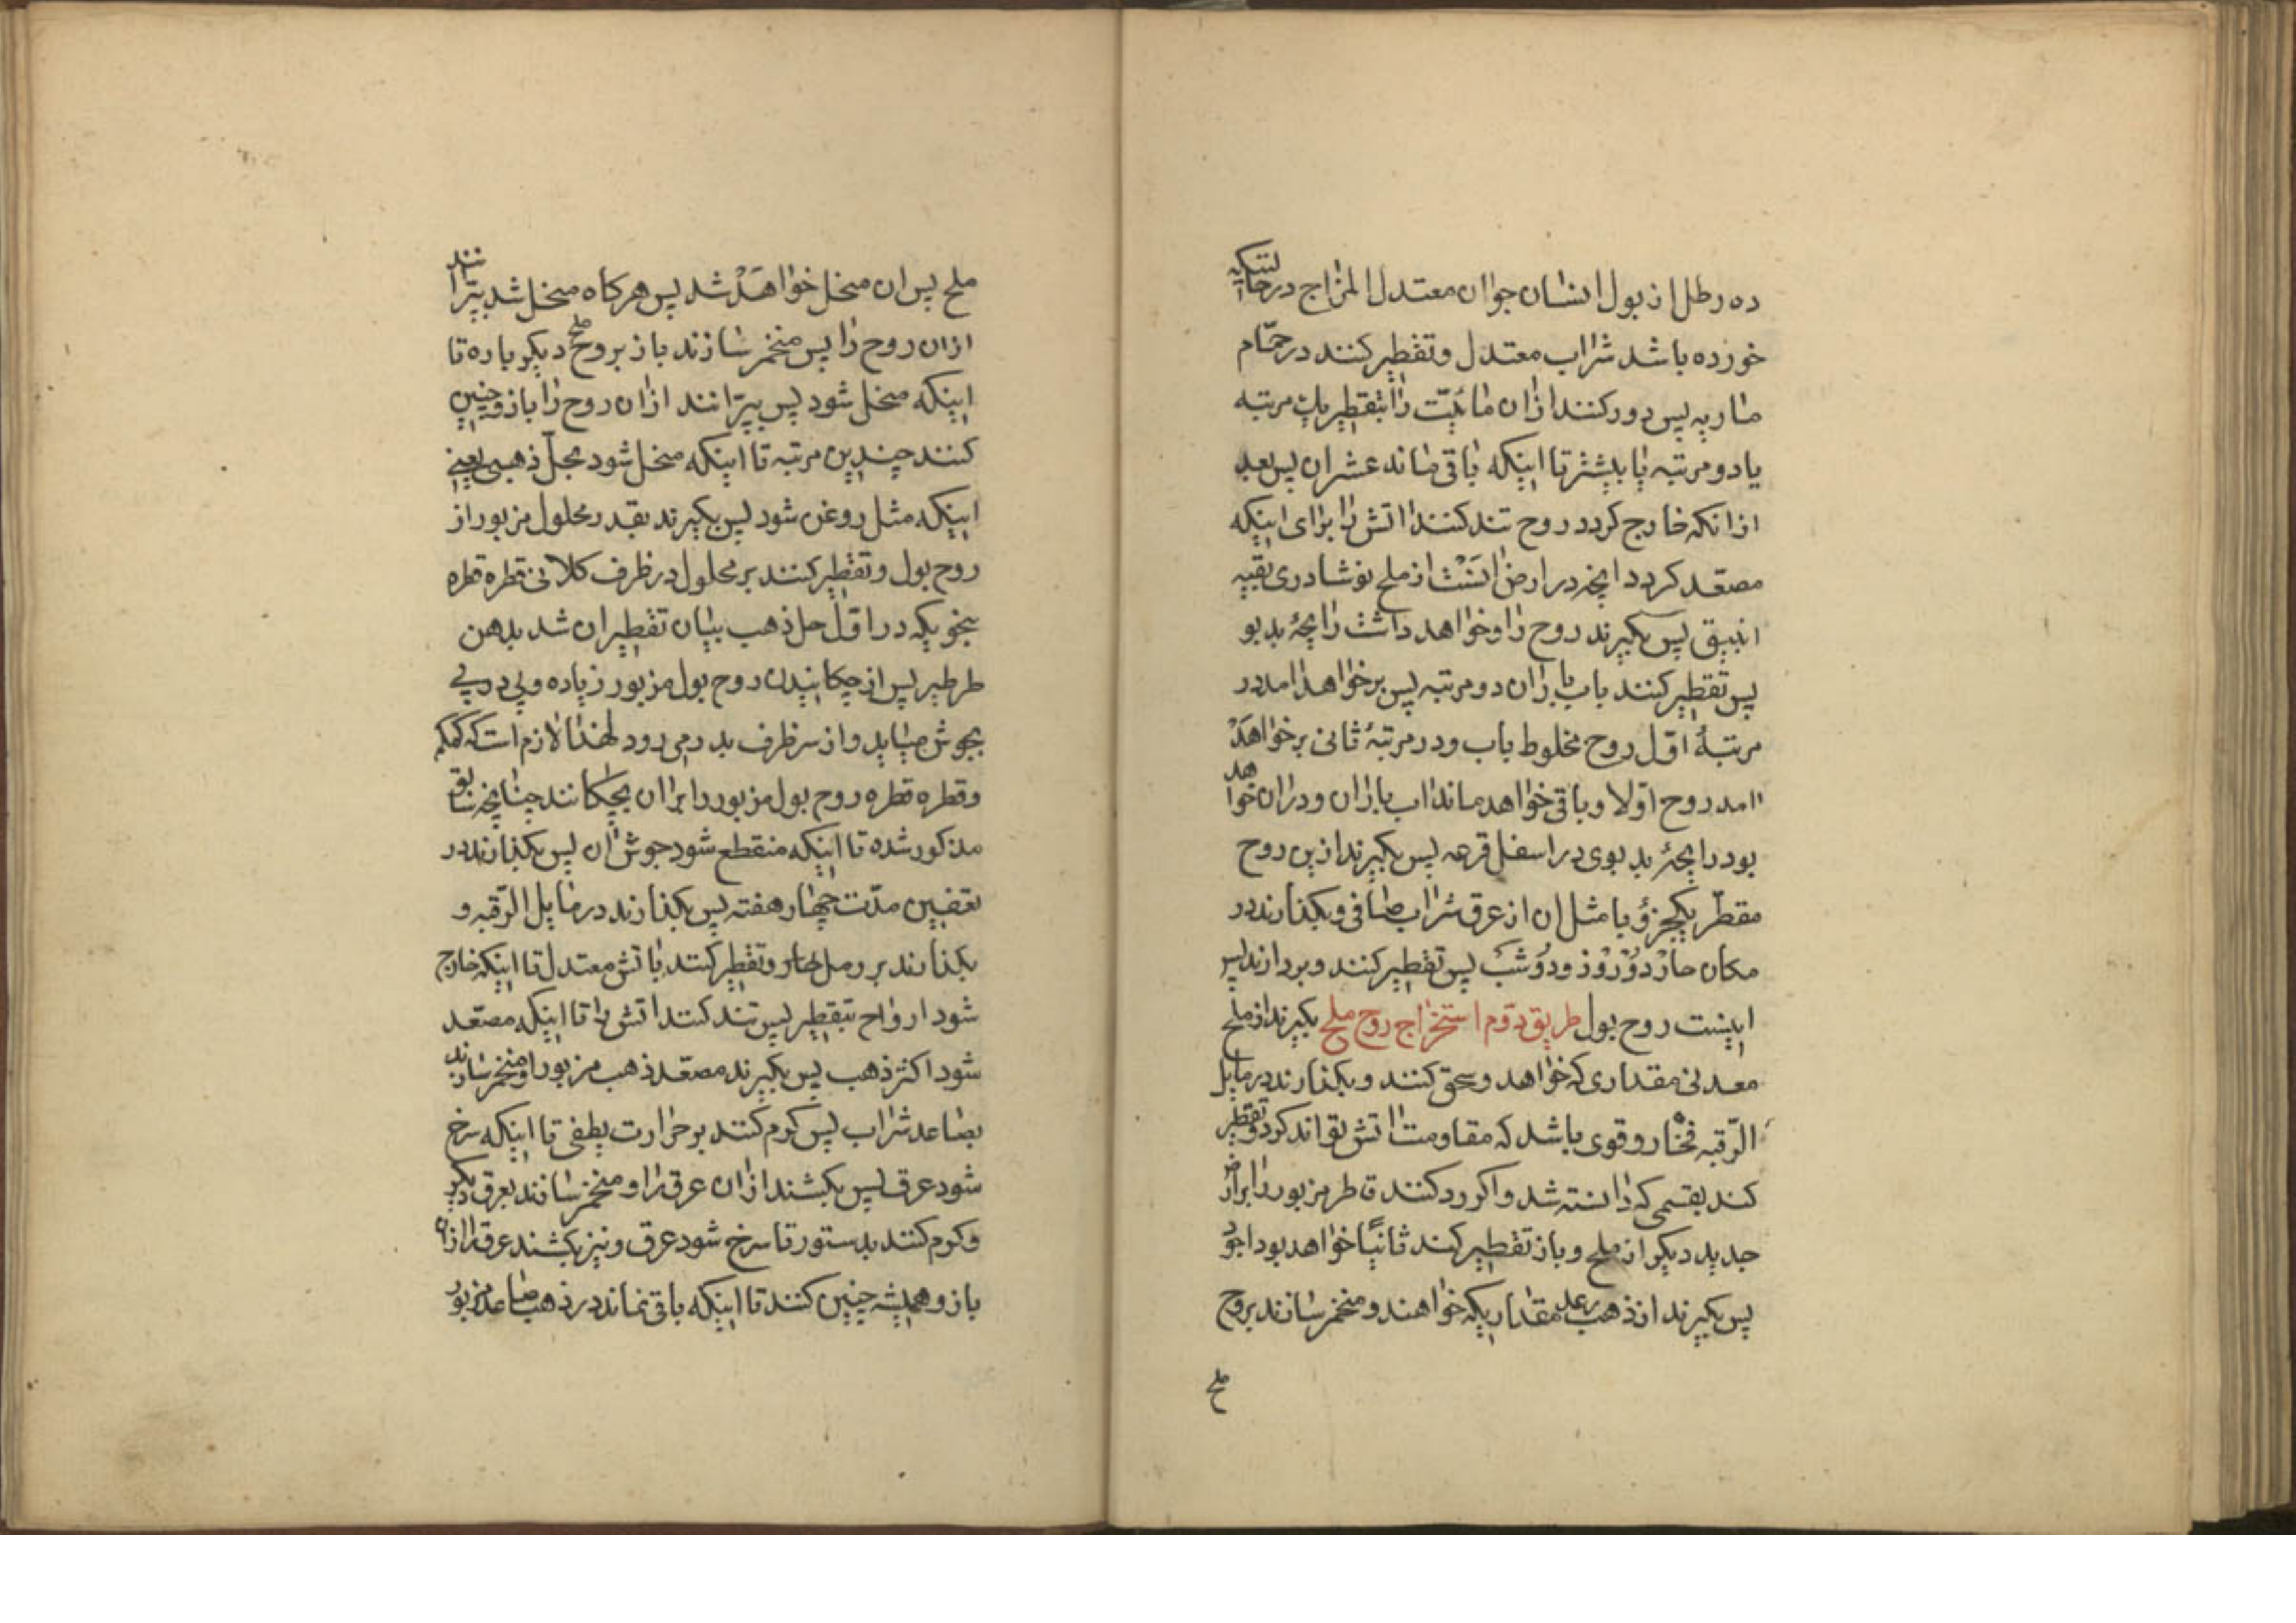 ده رطل از بول انسان جوان معتدل المزاج در حالتیکه
خورده باشد شراب معتدل و تقطیر کنند در حمّام
ماریه پس دور کنند ازان مائیّت را بتقطیر یک مرتبه
یا دو مرتبه یا بیشتر تا اینکه باقی ماند عشر ان پس بعد
از انکه خارج کردد روح تند کنند اتش را برای اینکه
مصعّد کردد انچه در ارض است از ملح نوشادری بقبه
انبیق پس بکیرند روح را و خواهد داشت رایحهٔ بد بو
پس تقطیر کنند باب باران دو مرتبه پس بر خواهد امد در
مرتبهٔ اوّل روح مخلوط باب و در مرتبهٔ ثانی بر خواهد
امد روح اولا و باقی خواهد ماند اب باران و دران خواهد
بود رایحهٔ بد بوی در اسفل قرعه پس بکیرند ازین روح
مقطّر یکجزؤ با مثل ان از عرق شراب صافی و بکذارند در
مکان حارّ دو روز و دو شب پس تقطیر کنند و بردارند پس
اینست روح بول طریق دوم استخراج روح ملح بکیرند از ملح
معدنی مقداری که خواهد و سحق کنند و بکذارند در مایل
الرّقبه فخّار و قوی باشد که مقاومت اتش تواند کرد و تقطیر
کند بقسمی که دانسته شد و اکر رد کنند قاطر مزبور را بر ارض
جدید دیکر از ملح و باز تقطیر کند ثانیًا خواهد بود اجود
پس بکیرند از ذهب رعد مقداریکه خواهند و متخمر سازند بروح
ملح
ملح پس ان منحل خواهد شد پس هرکاه منحل شد بپرانند
ازان روح را پس متخمر سازند باز بروح ملح دیکر باره تا
اینکه منحل شود پس بپرّانند ازان روح را باز و چنین
کنند چندین مرتبه تا اینکه منحل شود بحلّ ذهبی یعنی
اینکه مثل روغن شود پس بکیرند بقدر محلول مزبور از
روح بول و تقطیر کنند بر محلول در ظرف کلانی قطره قطره
بنحویکه در اوّل حل ذهب بیان تقطیر ان شد بدهن
طرطیر پس از چکانیدن روح بول مزبور زیاده و پی در پی
بجوش میاید و از سر ظرف بدر می رود لهذا لازم است که کمکم
و قطره قطره روح بول مزبور را بر ان بچکانند چنانچه سابق
مذکور شده تا اینکه منقطع شود جوش ان پس بکذارند در
تعفین مدّت چهار هفته پس بکذارند در مایل الرّقبه و
بکذارند بر رمل حار و تقطیر کنند باتش معتدل تا اینکه خارج
شود ارواح بتقطیر پس تند کنند اتش را تا اینکه مصعّد
شود اکثر ذهب پس بکیرند مصعّد ذهب مزبور را و متخمر سازند
بصاعد شراب پس کرم کنند بر حرارت بطفی تا اینکه سرخ
شود عرق پس بکشند ازان عرق را و متخمر سازند بعرق دیکر
و کرم کنند بدستور تا سرخ شود عرق و نیز بکشند عرق را ازان
باز و همیشه چنین کنند تا اینکه باقی نماند در ذهب صاعد مزبور